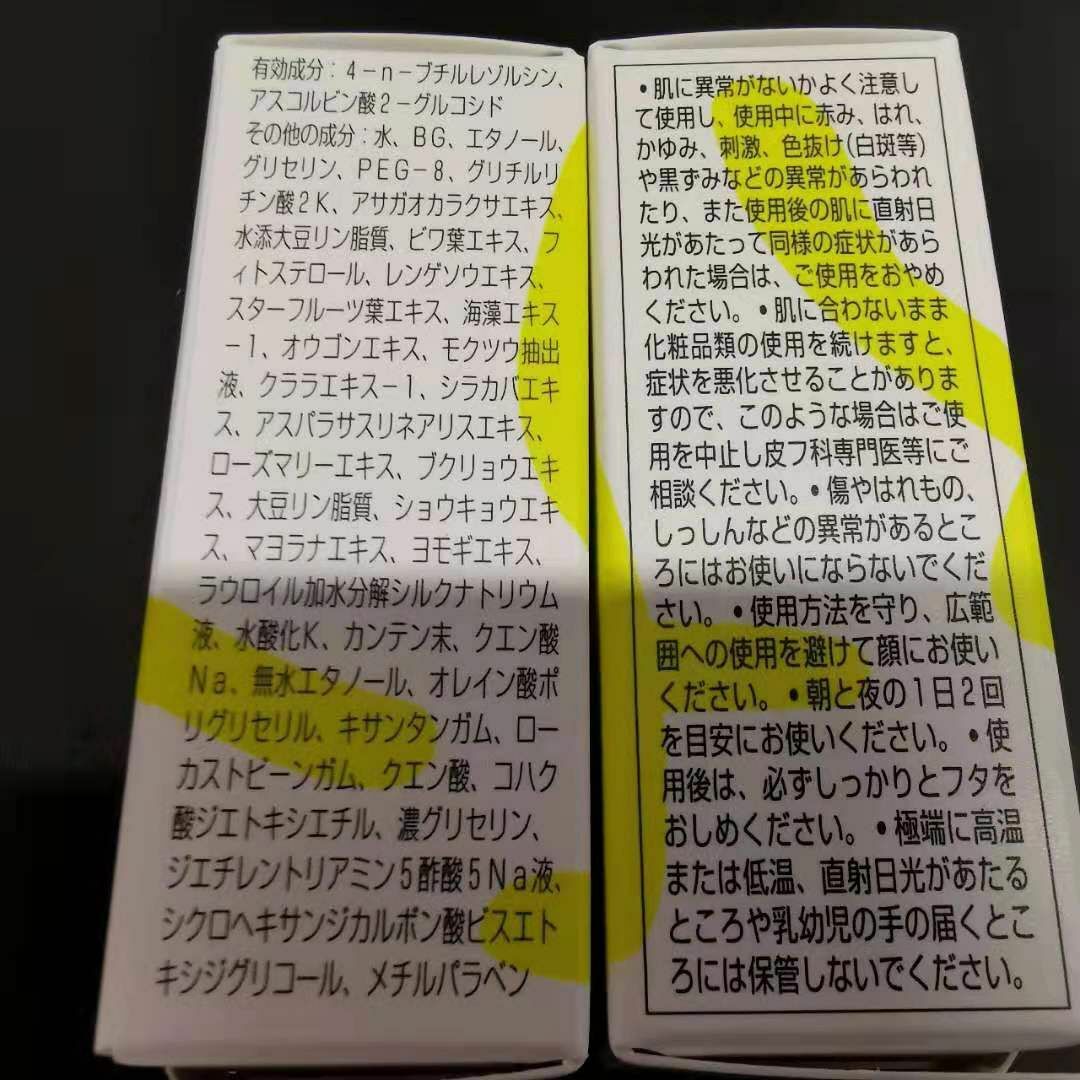 有効成分：4－n－ブチルレゾルシン、
アスコルビン酸2－グルコシド
その他の成分：水、BG、エタノール、
グリセリン、PEG－8、グリチルリ
チン酸2K、アサガオカラクサエキス、
水添大豆リン脂質、ビワ葉エキス、フ
ィトステロール、レンゲソウエキス、
スターフルーツ葉エキス、海藻エキス
－1、オウゴンエキス、モクツウ抽出
液、クララエキス－1、シラカバエキ
ス、アスパラサスリネアリスエキス、
ローズマリーエキス、ブクリョウエキ
ス、大豆リン脂質、ショウキョウエキ
ス、マヨラナエキス、ヨモギエキス、
ラウロイル加水分解シルクナトリウム
液、水酸化K、カンテン末、クエン酸
Na、無水エタノール、オレイン酸ポ
リグリセリル、キサンタンガム、ロー
カストビーンガム、クエン酸、コハク
酸ジエトキシエチル、濃グリセリン、
ジエチレントリアミン5酢酸5Na液、
シクロヘキサンジカルボン酸ビスエト
キシジグリコール、メチルパラベン
•肌に異常がないかよく注意し
て使用し、使用中に赤み、はれ、
かゆみ、刺激、色抜け(白斑等)
や黒ずみなどの異常があらわれ
たり、また使用後の肌に直射日
光があたって同様の症状があら
われた場合は、ご使用をおやめ
ください。•肌に合わないまま
化粧品類の使用を続けますと、
症状を悪化させることがありま
すので、このような場合はご使
用を中止し皮フ科専門医等にご
相談ください。•傷やはれもの、
しっしんなどの異常があるとこ
ろにはお使いにならないでくだ
さい。•使用方法を守り、広範
囲への使用を避けて顔にお使い
ください。•朝と夜の1日2回
を目安にお使いください。•使
用後は、必ずしっかりとフタを
おしめください。•極端に高温
または低温、直射日光があたる
ところや乳幼児の手の届くとこ
ろには保管しないでください。